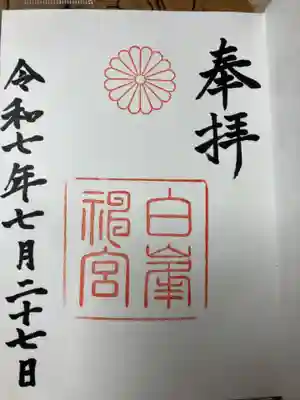 奉拝
白峯
神宮
令和七年七月二十七日